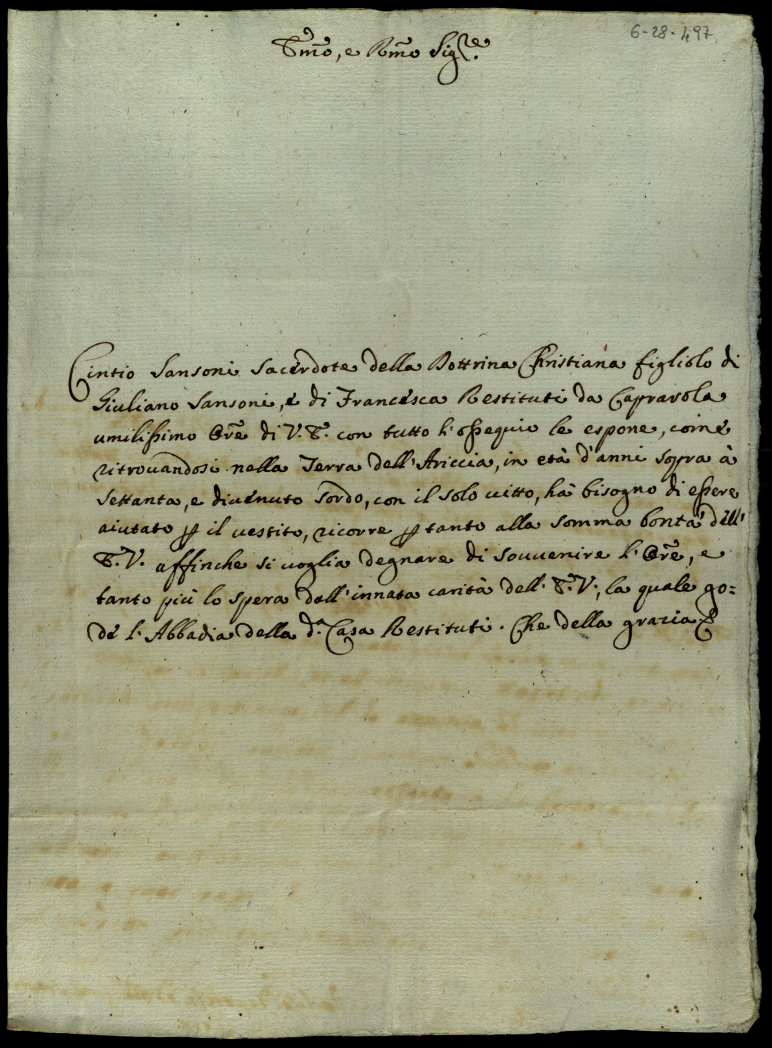 6-28-497
Emõ, e Rmõ Sig.re
Cintio Sansoni Sacerdote della Dottrina Christiana figliolo di
Giuliano Sansoni, e di Francesca Restituti da Capravola
umilissimo Ore di V. E. con tutto l'ossequio le espone, come
ritrovandosi nella Terra dell'Ariccia, in età d'anni sopra à
settanta, e divenuto sordo, con il solo vitto, hà bisogno di essere
aiutato p il vestito, ricorre p tanto alla somma bontà dell'
E. V. affinche si voglia degnare di souvenire l'Ore, e
tanto più lo spera dall'innata carità dell'E. V., la quale go=
de l'Abbadia della d.a Casa Restituti. Che della grazia